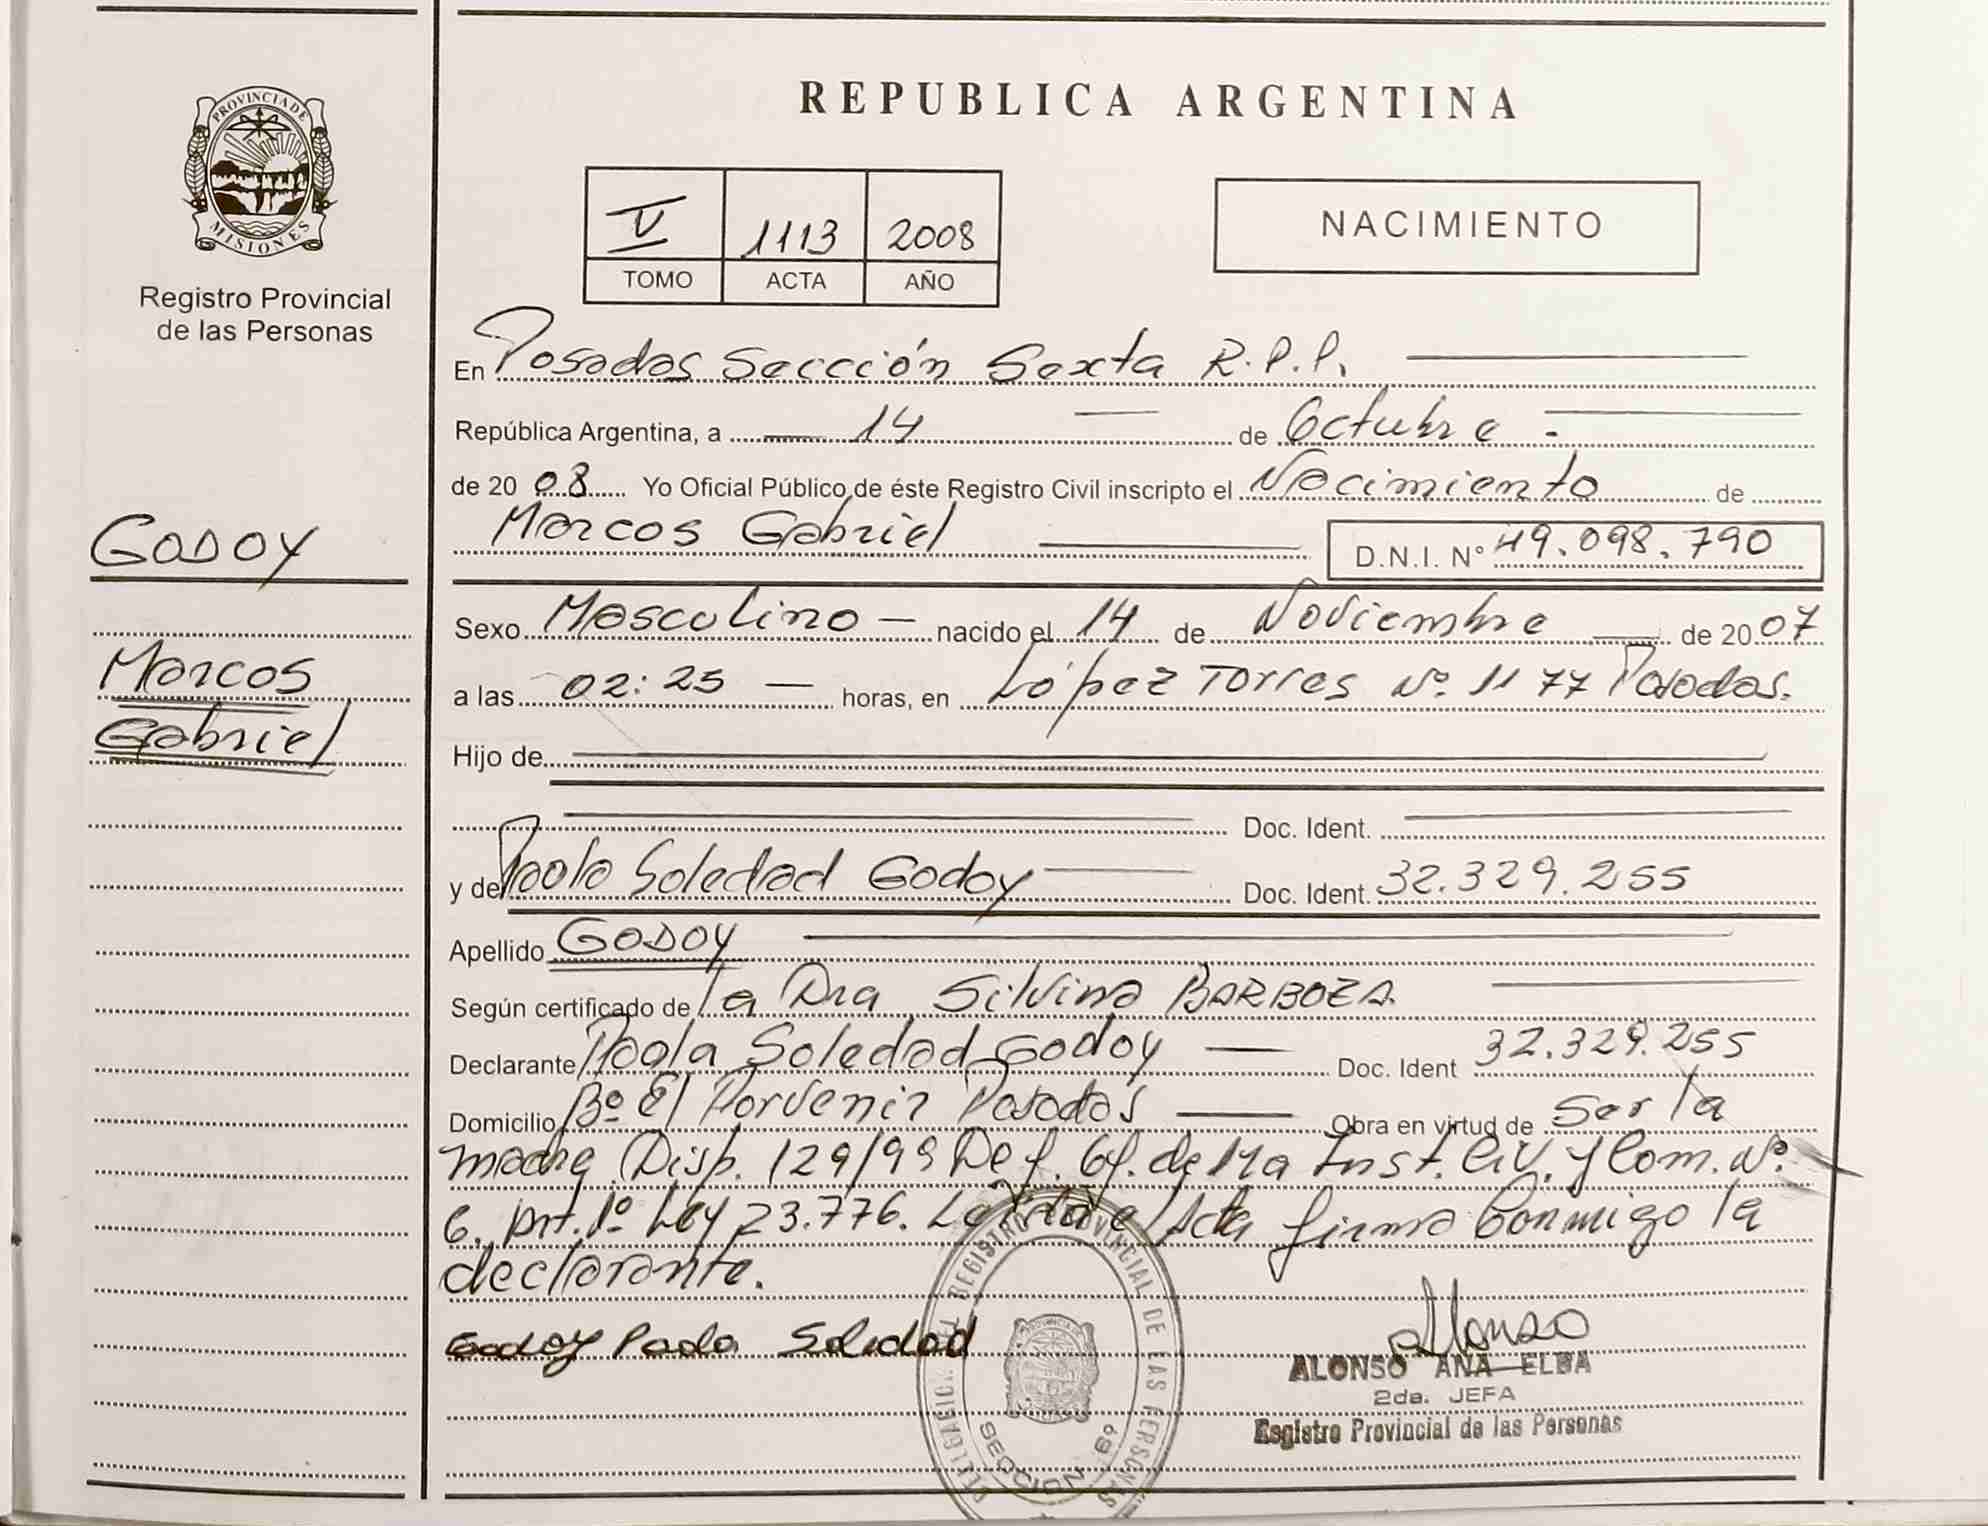 PROVINCIA DE
MISIONES
Registro Provincial
de las Personas
GODOY
Marcos
Gabriel
REPUBLICA ARGENTINA
V 1113 2008
TOMO ACTA AÑO
NACIMIENTO
En Posadas Sección Sexta R.P.P.
República Argentina, a 14 de Octubre.
de 20 08 Yo Oficial Público de éste Registro Civil inscripto el Nacimiento de
Marcos Gabriel D.N.I. N° 49.098.790
Sexo Masculino nacido el 14 de Noviembre de 20 07
a las 02:25 horas, en López Torres Nº 1177 Posadas.
Hijo de
Doc. Ident.
y de Paola Soledad Godoy Doc. Ident. 32.329.255
Apellido GODOY
Según certificado de la Dra Silvina BARBOZA.
Declarante Paola Soledad Godoy Doc. Ident 32.329.255
Domicilio Bº El Porvenir Posadas Obra en virtud de Ser la
madre. Disp. 129/99 Def. Of. de 1ra Inst. Civ. y Com. Nº
6. Art. 1º Ley 23.776. Leída el Acta firma Conmigo la
declarante.
Godoy Paola Soledad
Alonso
ALONSO ANA ELBA
2da. JEFA
Registro Provincial de las Personas
DELEGACION REGISTRO PROVINCIAL DE LAS PERSONAS
SECCION 6º